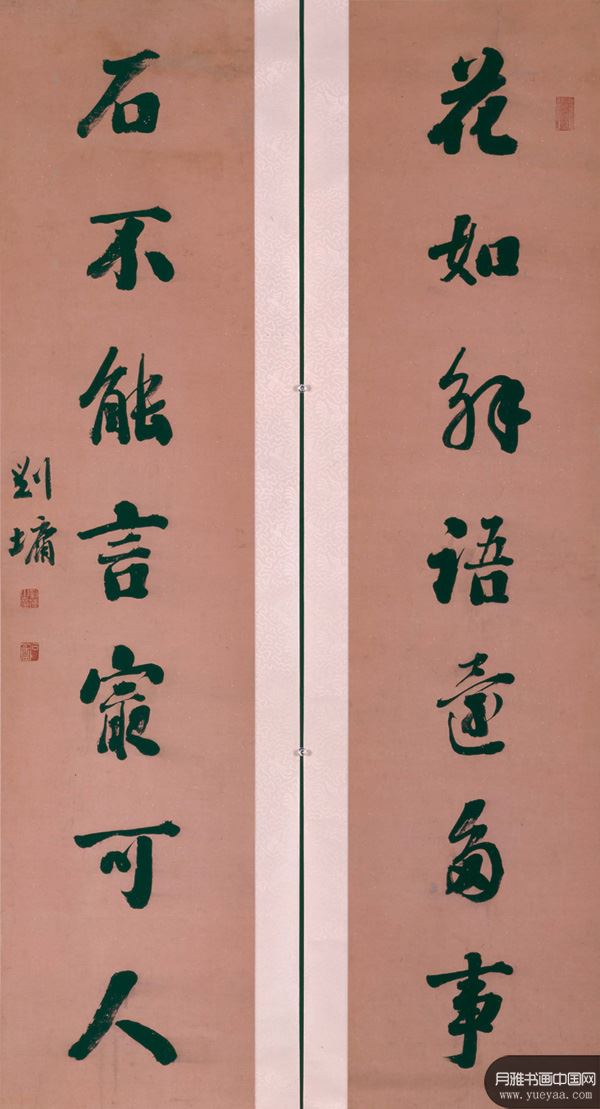 花如解語還多事
石不能言㝡可人
劉墉
月雅书画中国网
www.yueyaa.com